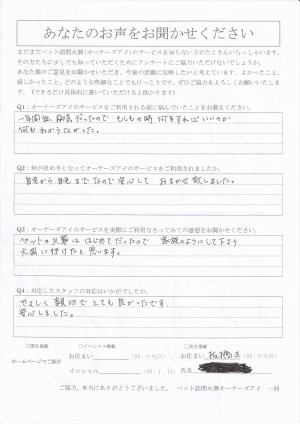 あなたのお声をお聞かせください
まだまだペット訪問火葬(オーナーズアイ)のサービスを知らない方がたくさんいらっしゃいます。
その方たちに少しでも知っていただくためにアンケートにご協力いただけないでしょうか。
あなた様のご意見をお聞かせいただき、今後の活動に反映したいと考えています。よかったこと、
嬉しかったこと、どのような些細なことでもけっこうです。ぜひご協力をよろしくお願いいたします。
(できるだけ具体的に書いていただけると助かります)
Q1:オーナーズアイのサービスをご利用される前に悩んでいたことをお教えください。
もしもの時 何をすればいいのか
何も わからなかった。
Q2:何が決め手となってオーナーズアイのサービスをご利用されましたか。
自宅から 自宅まで なので 安心して おまかせ致しました。
Q3:オーナーズアイのサービスを実際にご利用なさってみての感想をお聞かせください。
ペットの火葬は はじめてだったので 家族のようにして下さり
天国に行けたと思います。
Q4:対応したスタッフの対応はいかがでしたか。
やさしく 親切で とても良かったです。
安心しました。
ホームページでご紹介
□イニシャル掲載
お住まい (例:中央区)
イニシャル (例:J.H)
お住まい 板橋区 (例:中央区)
氏名
ご協力、本当にありがとうございました。 ペット訪問火葬オーナーズアイ 一同